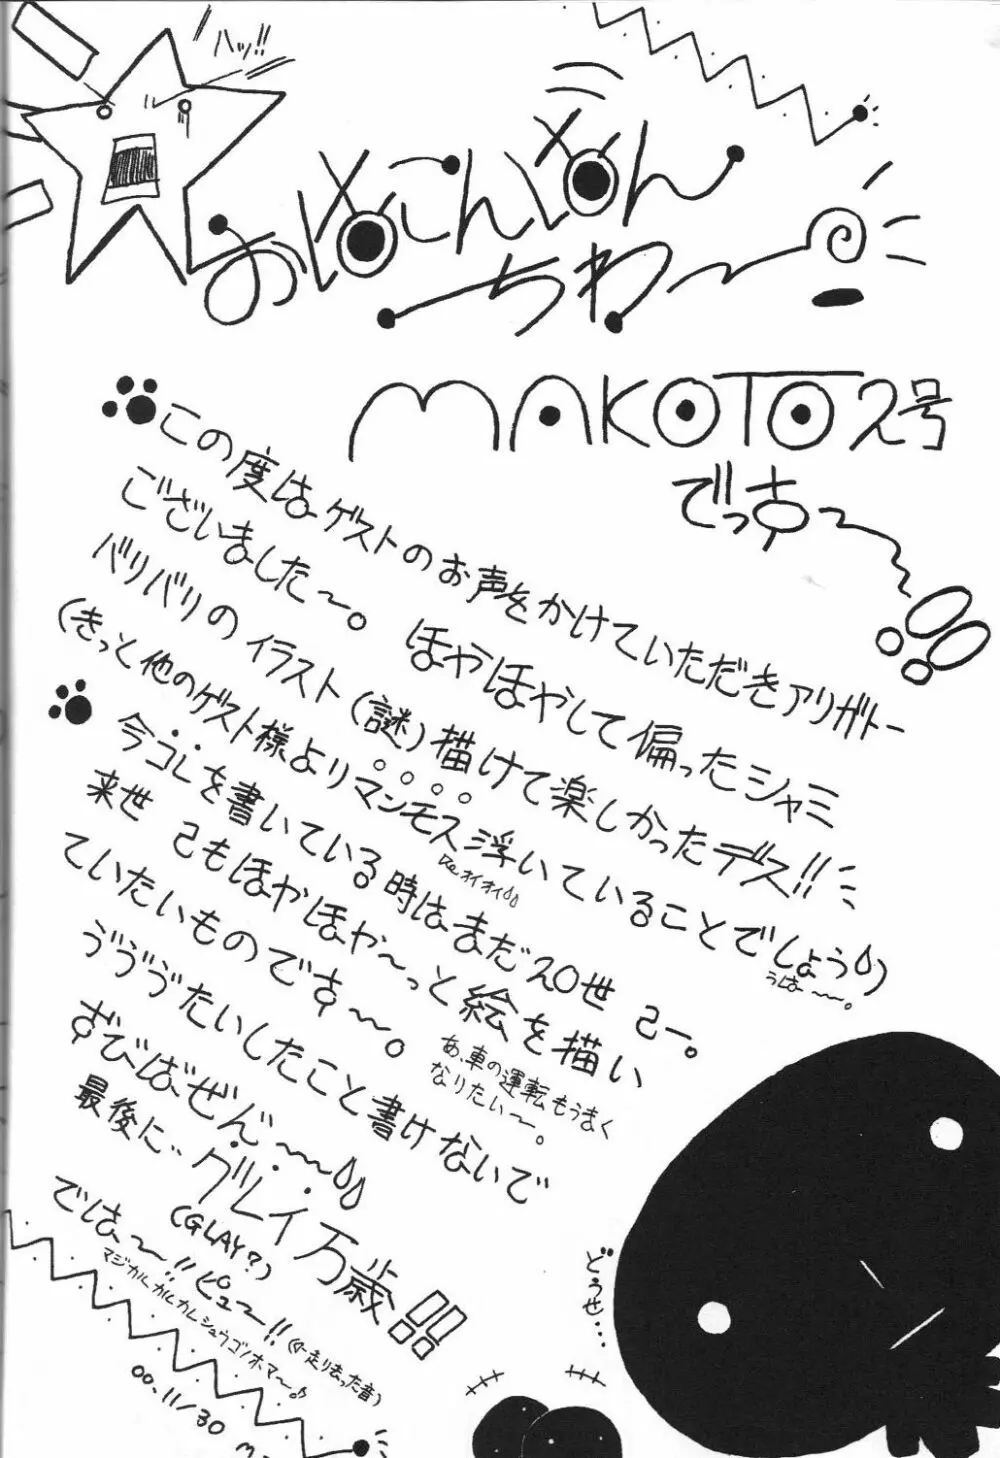 ハッ!!
おめこんめん
ちわー
MAKOTO 2号
でっすー!!
この度はゲストのお声をかけていただきアリガトー
ございました〜。ほやほやして偏ったシャミ
バリバリのイラスト(謎)描けて楽しかったデス!!
(きっと他のゲスト様よりマンモス浮いていることでしょう)
Re.オイオイ
うはー〜。
今コレを書いている時はまだ20世己ー。
来世己もほやほや〜っと絵を描い
ていたいものです〜。
あ、車の運転もうまく
なりたい〜。
ゔゔゔたいしたこと書けないで
ずびばぜん〜
最後に…グレイ万歳!!
(GLAY?)
でしは〜!!ピュ〜!!(←走り去った音)
マジカルカルカルシュウゴノホマ〜♪
00.11/30
どうせ…